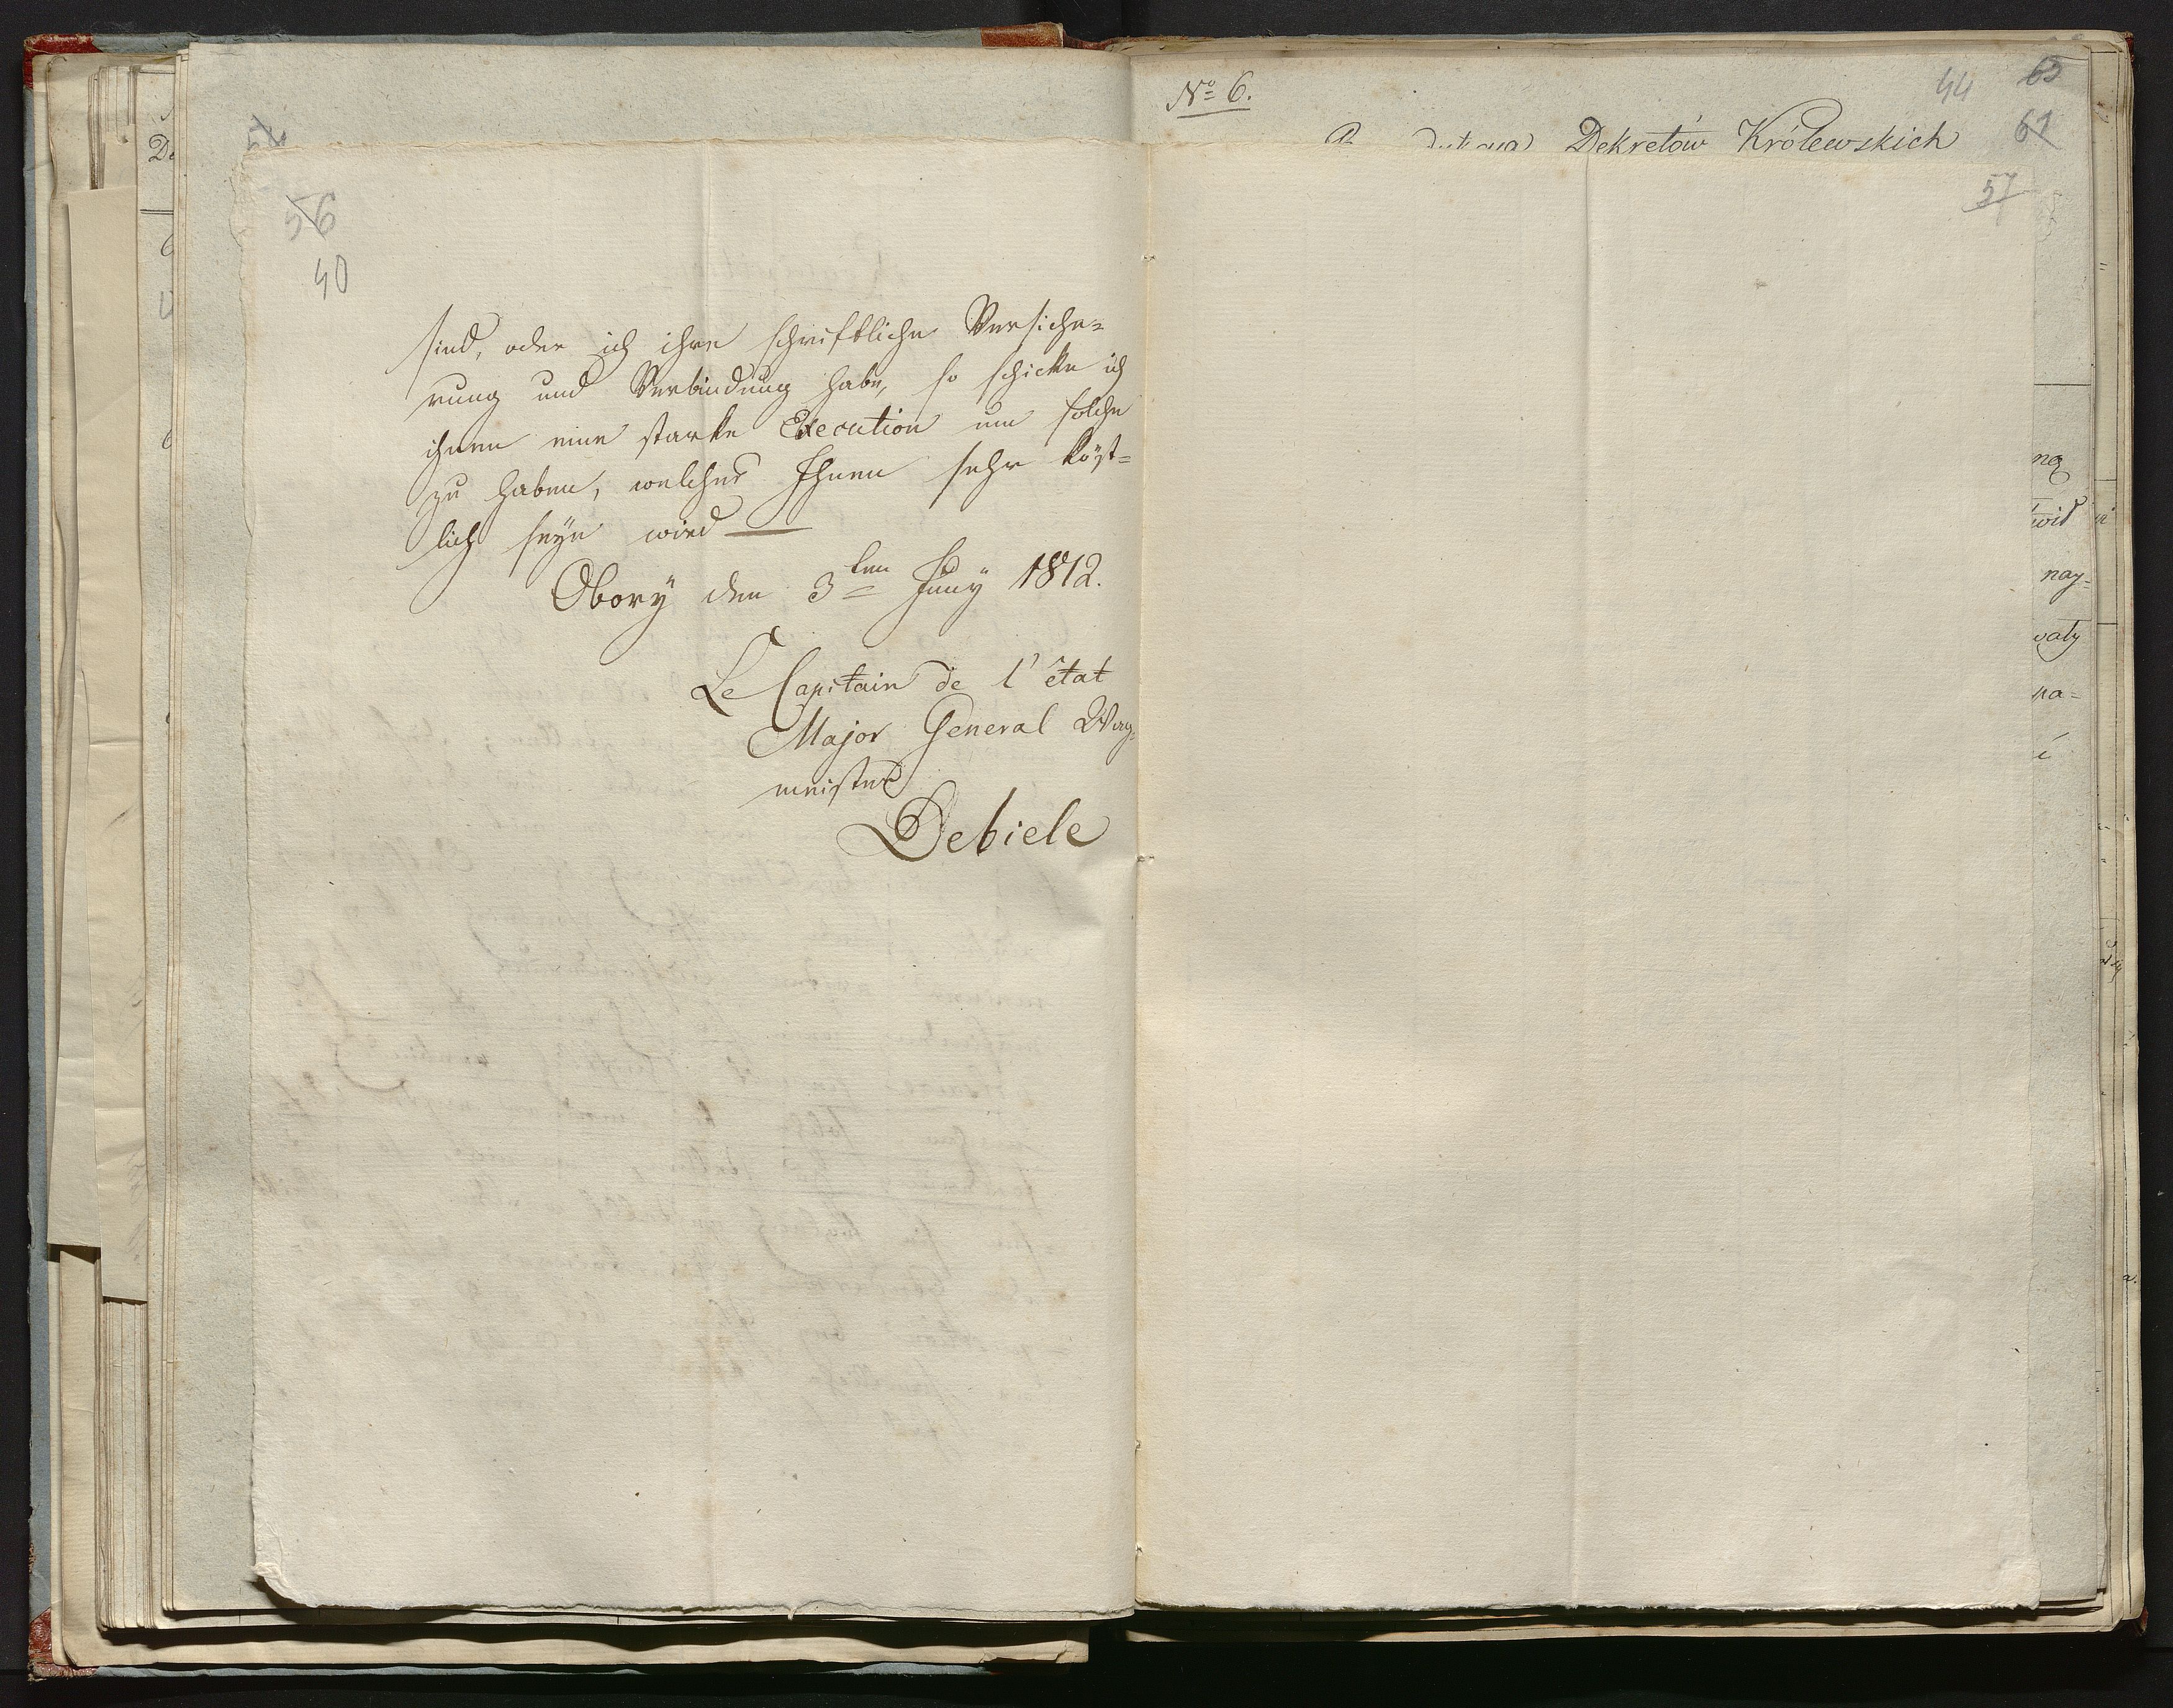 56
40
sind, oder ich ihre schriftliche Versiche=
rung und Verbindung habe, so schicke ich
ihnen eine starke Execution um solche
zu haben, welches Ihnen sehr köst=
lich seyn wird —
Obory den 3ten Juny 1812.
Le Capitain de l'état
Major General Wag=
meister
Debiele
No 6.
44 65
61
Dekretów Królewskich
57
ną
nay=
wały
na=
i